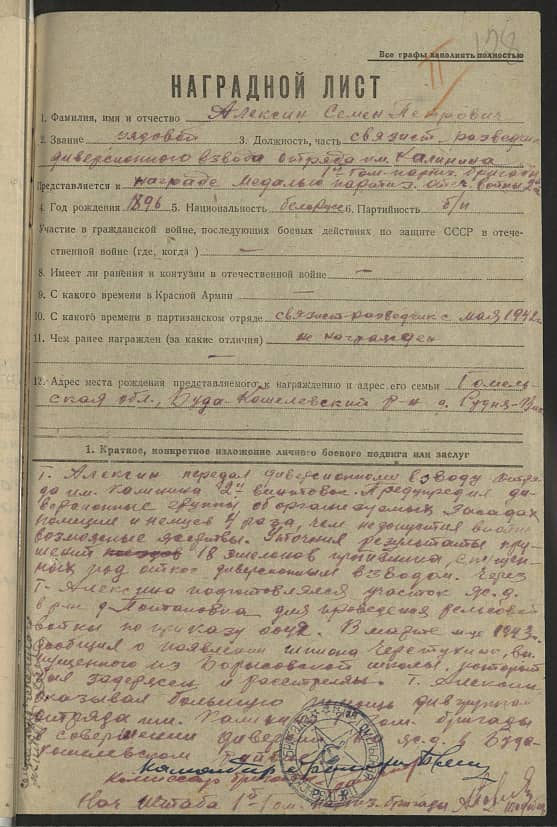 178
II
Все графы заполнять полностью
НАГРАДНОЙ ЛИСТ
1. Фамилия, имя и отчество Алексин Семен Петрович
2. Звание рядовой 3. Должность, часть связист, разведчик
диверсионного взвода отряда им. Калинина
1й Гом. партиз. бригады
Представляется к награде медалью партиз. отеч. войны 2й
4. Год рождения 1896 5. Национальность белорус 6. Партийность б/п
Участие в гражданской войне, последующих боевых действиях по защите СССР в отече-
ственной войне (где, когда) —
8. Имеет ли ранения и контузии в отечественной войне —
9. С какого времени в Красной Армии —
10. С какого времени в партизанском отряде связист-разведчик с мая 1942 г
11. Чем ранее награжден (за какие отличия) не награжден
—
12. Адрес места рождения представляемого к награждению и адрес его семьи Гомель-
ская обл., Буда-Кошелевский р-н д. Рудня
1. Краткое, конкретное изложение личного боевого подвига или заслуг
Т. Алексин передал диверсионному взводу отря-
да им. Калинина 2 винтовок. Предупредил ди-
версионные группы об организуемых засадах
полиции и немцев 4 раза, чем не допустил
возможные жертвы. Уточнял результаты кру-
шений 18 эшелонов противника, спущен-
ных под откос диверсионным взводом. Через
Т. Алексина подготовлялся участок ж.д.
в р-не д. для проведения рельсовой
войны по приказу В марте м-це 1943 г.
сообщил о появлении шпиона вы-
пущенного из Борисовской школы, который
был задержан и расстрелян. Т. Алексин
оказывал большую помощь
отряда им. Калинина бригады
в совершении ж.д. в Буда-
Кошелевском
командир
комиссар
Нач штаба 1й Гом. партиз. бригады